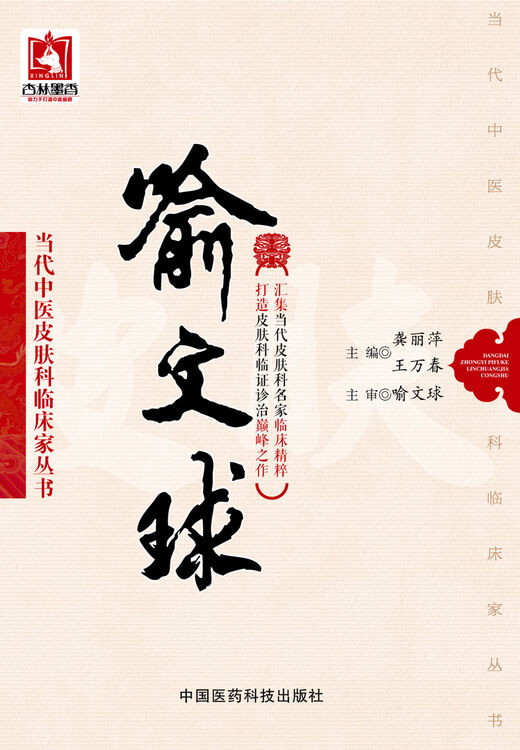 XINGLIN
杏林墨香
致力于打造中医临症
当代中医皮肤科临床家丛书
喻文球
汇集当代皮肤科名家临床精粹
打造皮肤科临证诊治巅峰之作
主编◎
龚丽萍
王万春
主审◎喻文球
DANGDAI
ZHONGYI PIFUKE
LINCHUANGJIA
CONGSHU
当代中医皮肤科临床家丛书
皮肤
中国医药科技出版社